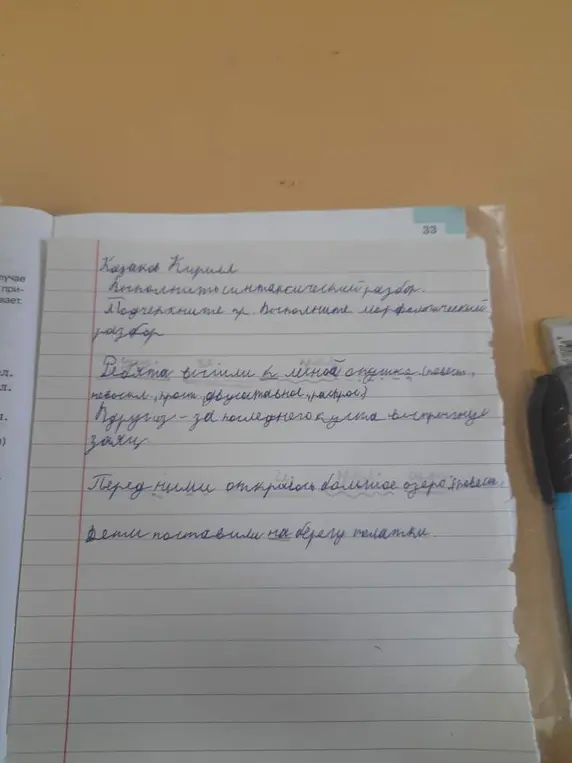 33
лучае
при-
вает.
Казаков Кирилл
Выполнить синтаксический разбор.
Подчеркните пр. Выполните морфологический
разбор
Ребята вышли к лесной опушке (повест.,
невоскл., прост., двусоставное, распрос.)
Вдруг из - за последнего куста выпрыгнул
заяц
Перед ними открылось большое озеро (повест.,
Дети поставили на берегу палатки.